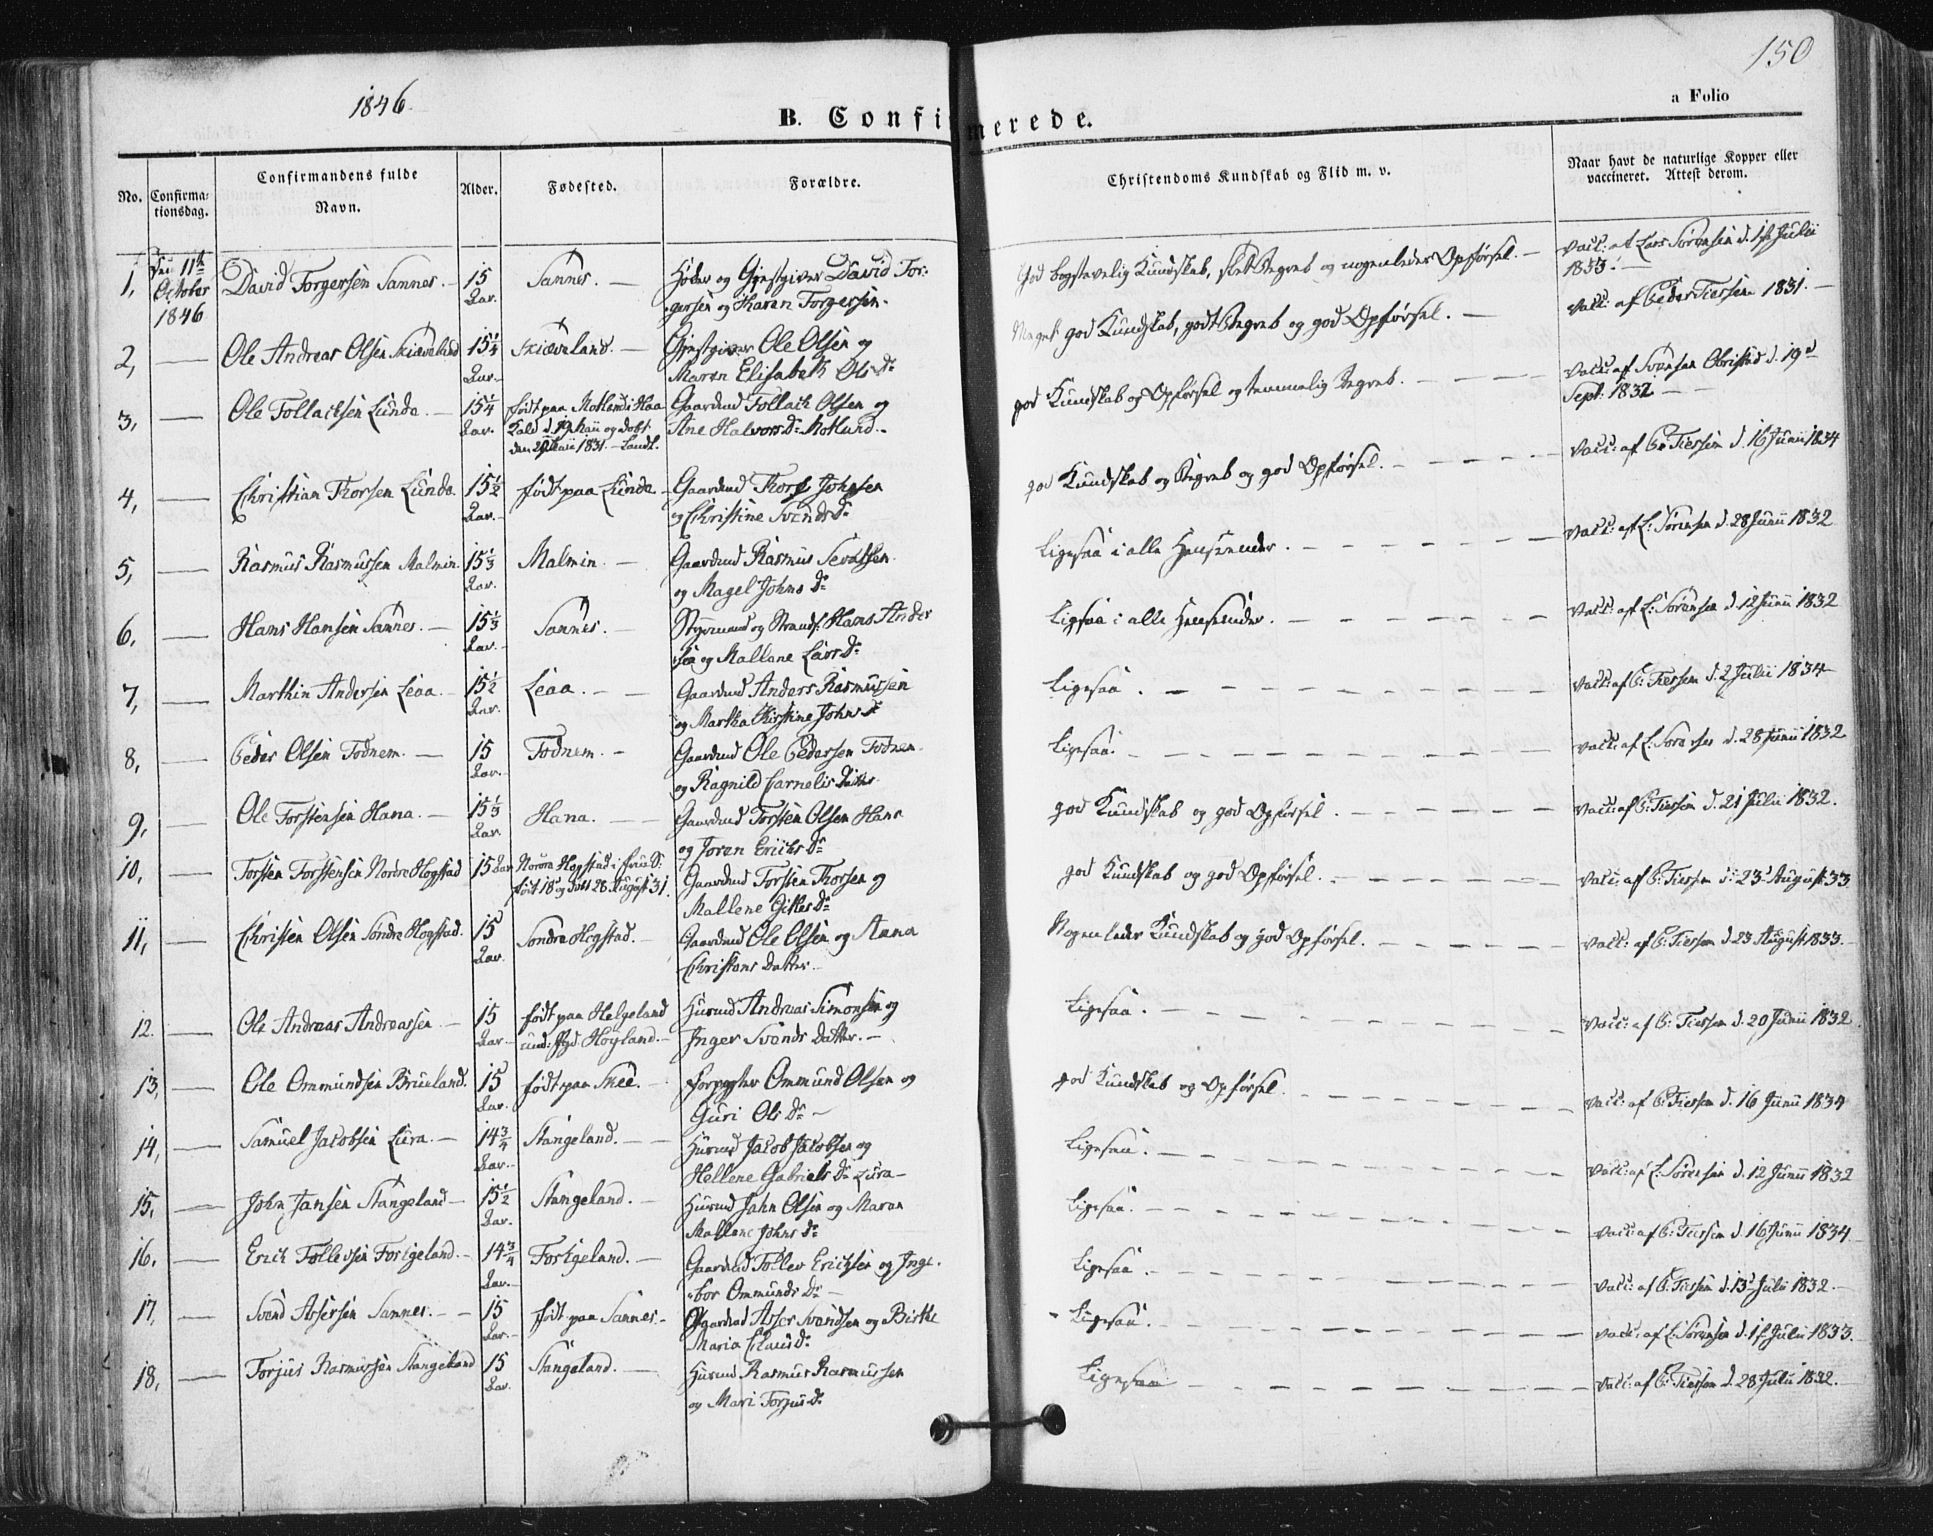 150
1846.
a Folio
B. Confirmerede.
No.
Confirma-
tionsdag.
Confirmandens fulde
Navn.
Alder.
Fødested.
Forældre.
Christendoms Kundskab og Flid m. v.
Naar havt de naturlige Kopper eller
vaccineret. Attest derom.
1, Den 11te October 1846 David Torgersen Sannes. 15 Aar. Sannes. Gjestgiver David Tor-
gersen og Karen Torgersen. God bogstavelig Kundskab, slet Begreb og nogenledes Opførsel. Vacc: af Lars Sørensen d. 1ste Julii
1833.
2, Ole Andreas Olsen Skiæveland 15 1/4 Aar. Skiæveland. Gjestgiver Ole Olsen og
Maren Elisabeth Ols Dr Meget god Kundskab, godt Begreb og god Opførsel. Vacc: af Peder Tiessen 1831.
3, Ole Tollachsen Lunde. 15 1/4 Aar. født paa Motland i Haa
den Maii 1831. Gaardmd Tollack Olsen og
Ane Halvors Dr Motland. god Kundskab og Opførsel og temmelig Begreb. Vacc: af Sørensen d. 19d
Sept: 1832
4, Christian Thorsen Lunde. 15 1/2 Aar. født paa Lunde Gaardmd Thore Johnsen
og Christine Svends Dr god Kundskab og Begreb og god Opførsel. Vacc: af P: Tiessen d. 16 Junii 1834
5, Rasmus Rasmussen Malmin. 15 1/3 Aar. Malmin. Gaardmd Rasmus Sevatsen
og Magel Johns Dr Ligesaa i alle Henseender. Vacc: af L: Sørensen d. 28 Junii 1832
6, Hans Hansen Sannes. 15 1/3 Aar. Sannes. Styrmand og Strands. Hans Ander
sen og Mallene Lars Dr Ligesaa i alle Henseender. Vacc: af L: Sørensen d. 12 Junii 1832
7, Marthin Andersen Leaa. 15 1/2 Aar. Leaa. Gaardmd Anders Rasmussen
og Martha Kirstine Johns Dr Ligesaa. Vacc: af P: Tiessen d. 2 Julii 1834
8, Peder Olsen Todnem. 15 Aar. Todnem. Gaardmd Ole Pedersen Todnem
og Ragnild Cornelis Datter Ligesaa. Vacc: af L: Sørensen d. 28 Junii 1832
9, Ole Torstensen Hana. 15 1/3 Aar. Hana. Gaardmd Torsten Olsen Hana
og Joren Erichs Dr god Kundskab og god Opførsel. Vacc: af P: Tiessen d. 21 Julii 1832.
10, Torsten Torstensen Nordre Hogstad 15 Aar Nordre Hogstad i Frue S:
født 18 og døbt 28 August 31. Gaardmd Torsten Thorsen og
Mallene Gitles Dr god Kundskab og god Opførsel. Vacc: af P: Tiessen d: 23 August 33
11, Christen Olsen Søndre Hogstad. 15 Aar. Søndre Hogstad. Gaardmd Ole Olsen og Anna
Christens Datter. Nogenledes Kundskab og god Opførsel. Vacc: af P: Tiessen d 23 August 1833.
12. Ole Andreas Andreassen 15 Aar født paa Helgeland
Høyland. Husmd Andreas Simonsen og
Inger Svends Datter. Ligesaa. Vacc: af P: Tiessen d. 20 Junii 1832
13, Ole Ommundsen Bruuland. 15 Aar. født paa Skee. Forpagter Ommund Olsen og
Guri Ols Dr god Kundskab og Opførsel. Vacc: af P: Tiessen d. 16 Junii 1834
14, Samuel Jacobsen Lura. 14 3/4 Aar. Stangeland. Husmd Jacob Jacobsen og
Hellene Gabriels Dr Lura Ligesaa. Vacc: af L: Sørensen d. 12 Junii 1832
15, John Jansen Stangeland 15 1/2 Aar. Stangeland. Husmd Jahn Olsen og Maren
Mallene Johns Dr Ligesaa. Vacc: af P: Tiessen d. 16 Junii 1834
16, Erich Tollevsen Foshgeland. 14 3/4 Aar. Foshgeland. Gaardmd Tollev Erichsen og Inge-
bor Ommunds Dr Ligesaa. Vacc: af P: Tiessen d. 13 Julii 1832.
17, Svend Assersen Sannes. 15 Aar. født paa Sannes. Gaardmd Asser Svendsen og Birthe
Maria Claus Dr Ligesaa. Vacc: af L: Sørensen d. 1ste Julii 1833.
18, Torjus Rasmussen Stangeland 15 Aar. Stangeland. Husmd Rasmus Rasmussen
og Mari Torjus Dr Ligesaa Vacc: af P: Tiessen d. 28 Julii 1832.